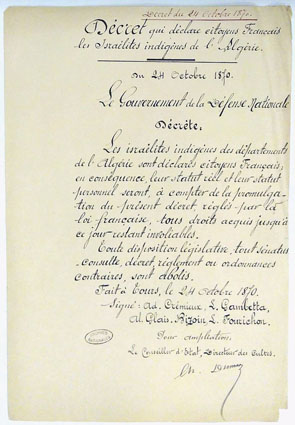 Décret du 24 Octobre 1870.
Décret qui déclare citoyens Français
les Israélites indigènes de l'Algérie.
Du 24 Octobre 1870.
Le Gouvernement de la Défense Nationale
Décrète,
Les israélites indigènes des départements
de l'Algérie sont déclarés citoyens Français;
en conséquence, leur statut réel et leur statut
personnel seront, à compter de la promulga-
tion du présent décret, réglés par la
loi française, tous droits acquis jusqu'à
ce jour restant inviolables.
Toute disposition législative, tout sénatus
consulte, décret, règlement ou ordonnances
contraires, sont abolis.
Fait à Tours, le 24 Octobre 1870.
Signé: Ad. Crémieux, L. Gambetta,
Al. Glais-Bizoin, L. Fourichon.
Pour ampliation.
Le Conseiller d'Etat, Directeur des Cultes.